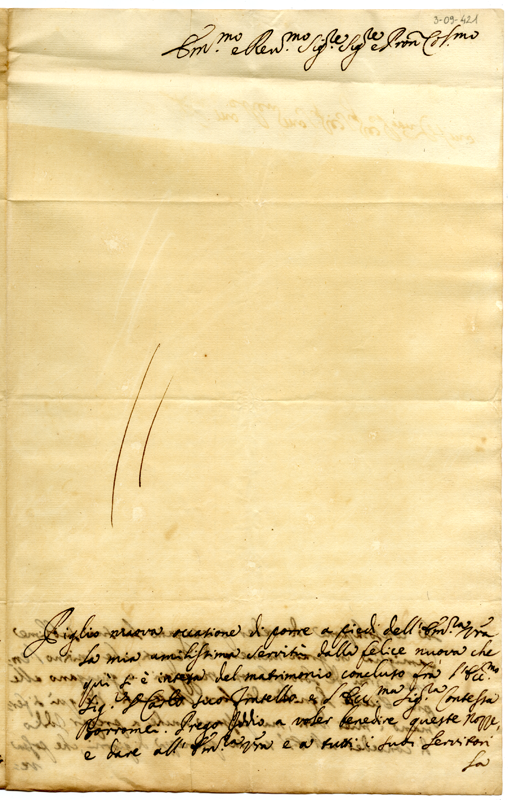 3-09-421
Em.mo e Rev.mo Sig.re Sig.re e Pron Col.mo
Piglio nuova occasione di porre a piedi dell'Em.za V.ra
la mia umilissima servitù dalla felice nuova che
qui s'è intesa del matrimonio concluso fra l'Ecc.mo
Sig. Carlo suo fratello, e l'Ecc.ma Sig.ra Contessa
Borromei. Prego Iddio a voler benedire queste nozze,
e dare all'Em.za V.ra e a tutti i suoi servitori
la